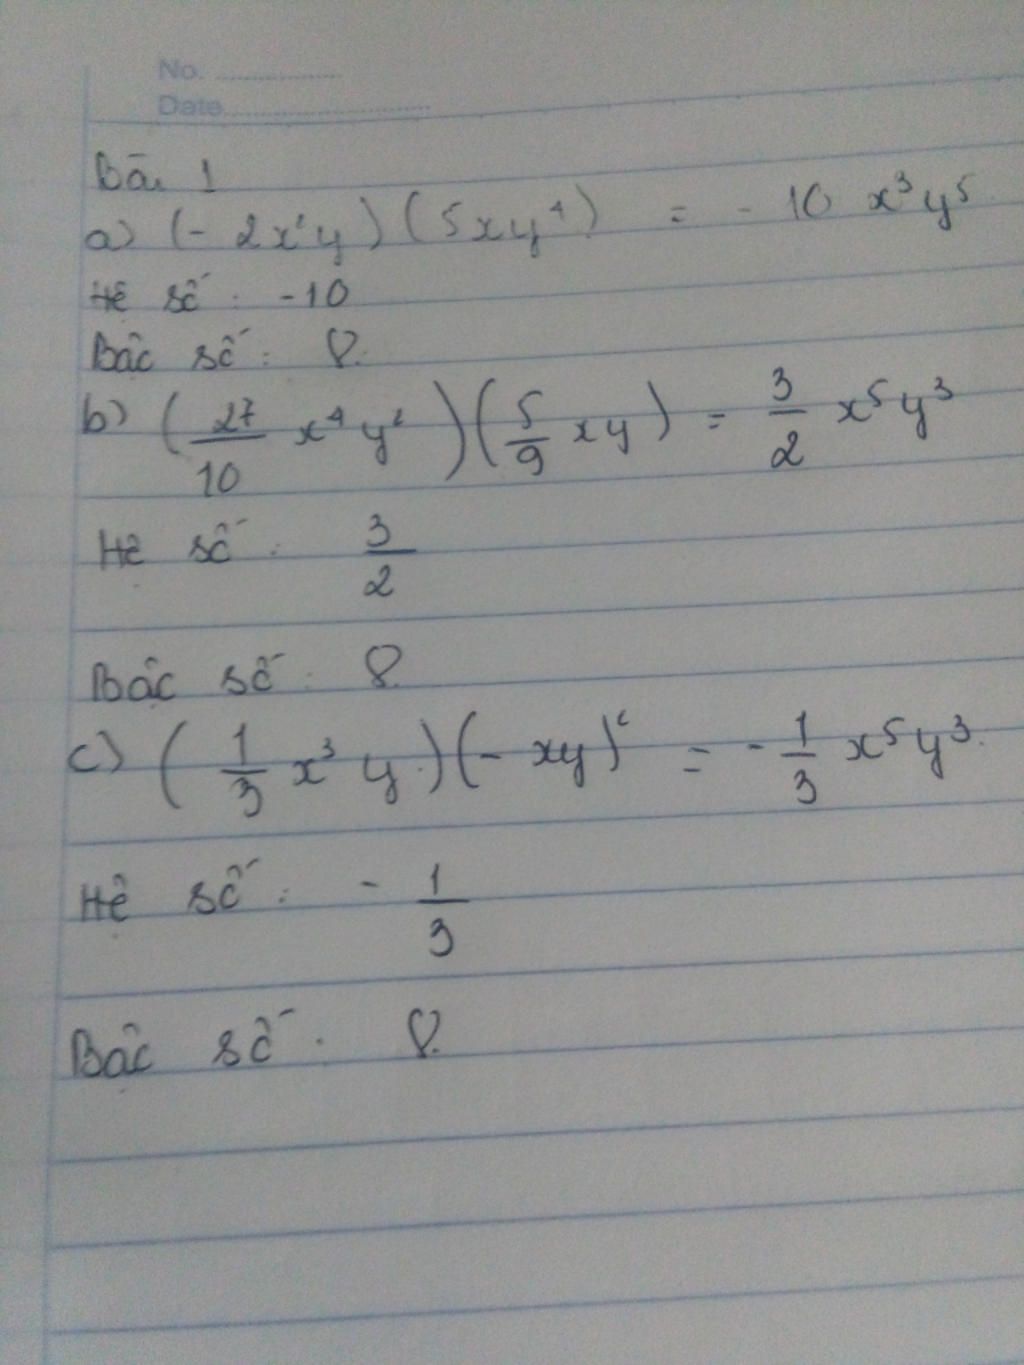 No. ..................
Date..............................
Bài 1
a) (- 2x²y) (5xy⁴) = - 10 x³y⁵
Hệ số : -10
Bậc số : 8.
b) (27/10 x⁴y²)(5/9 xy) = 3/2 x⁵y³
Hệ số : 3/2
Bậc số : 8
c) (1/3 x³ y.)(- xy)² = - 1/3 x⁵y³.
Hệ số : - 1/3
Bậc số : 8.